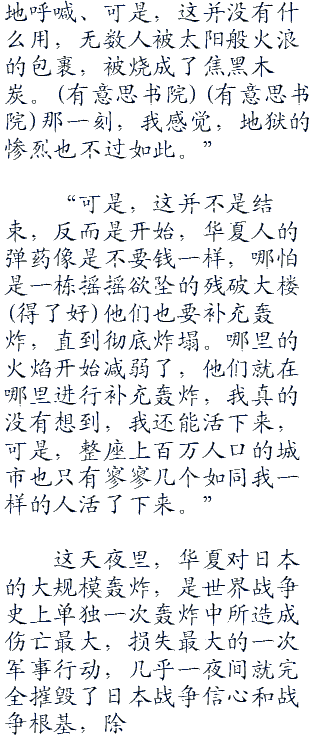 地呼喊、可是，这并没有什
么用，无数人被太阳般火浪
的包裹，被烧成了焦黑木
炭。(有意思书院)(有意思书
院)那一刻，我感觉，地狱的
惨烈也不过如此。”
“可是，这并不是结
束，反而是开始，华夏人的
弹药像是不要钱一样，哪怕
是一栋摇摇欲坠的残破大楼
(得了好)他们也要补充轰
炸，直到彻底炸塌。哪里的
火焰开始减弱了，他们就在
哪里进行补充轰炸，我真的
没有想到，我还能活下来，
可是，整座上百万人口的城
市也只有寥寥几个如同我一
样的人活了下来。”
这天夜里，华夏对日本
的大规模轰炸，是世界战争
史上单独一次轰炸中所造成
伤亡最大，损失最大的一次
军事行动，几乎一夜间就完
全摧毁了日本战争信心和战
争根基，除